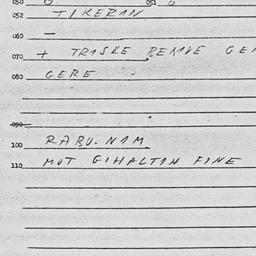 050 051
052 TIKERAN
060 —
070 + TRASKE BERAVE GEN
080 GERE
090
100 RABU. NAM
110 MOT GIHALTAN FINE